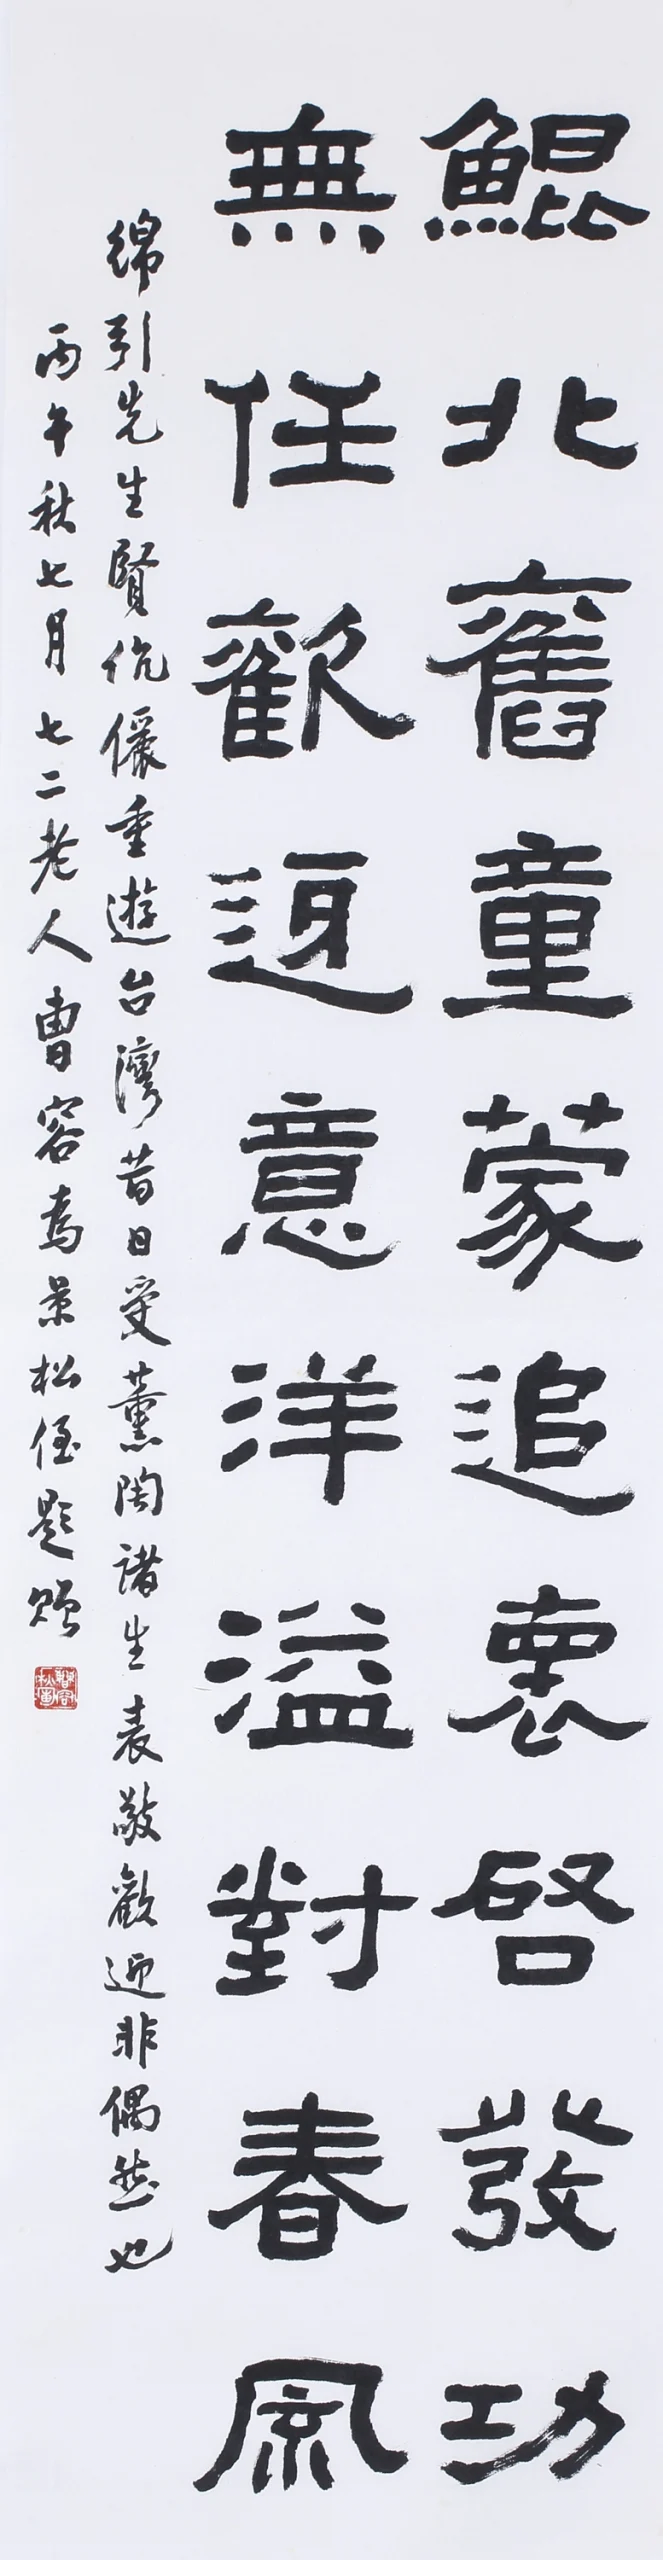 鯤北舊童蒙追懷啓發功
無任歡迎意洋溢對春風
綿引先生賢伉儷重遊台灣昔日受薰陶諸生表敬歡迎非偶然也
丙午秋七月七二老人曹容為景松侄題贈